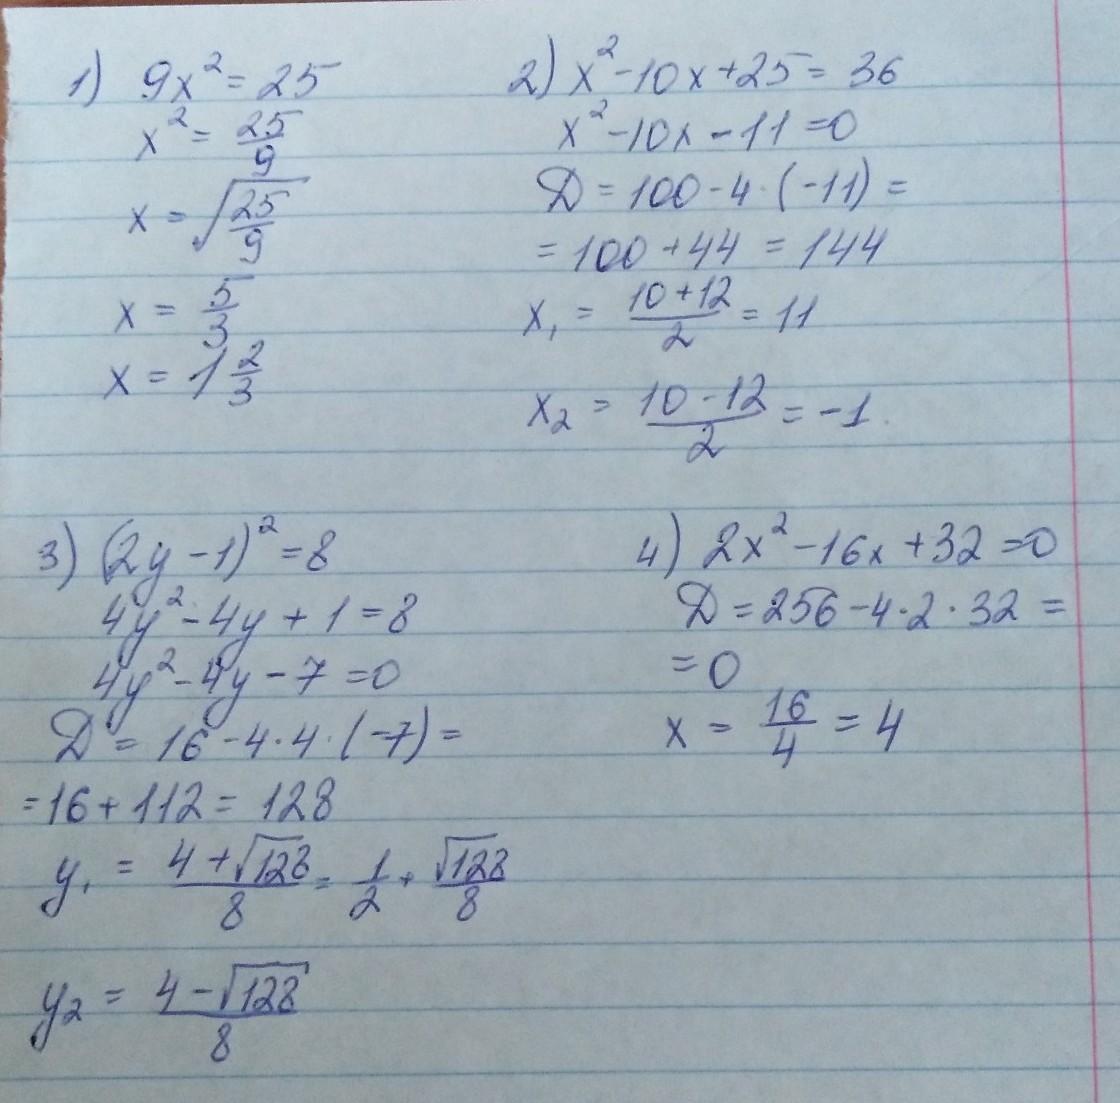 1) 9x² = 25
x² = 25/9
x = √(25/9)
x = 5/3
x = 1 2/3
2) x² - 10x + 25 = 36
x² - 10x - 11 = 0
D = 100 - 4 · (-11) =
= 100 + 44 = 144
x₁ = (10 + 12)/2 = 11
x₂ = (10 - 12)/2 = -1.
3) (2y - 1)² = 8
4y² - 4y + 1 = 8
4y² - 4y - 7 = 0
D = 16 - 4 · 4 · (-7) =
= 16 + 112 = 128
y₁ = (4 + √128)/8 = 1/2 + √128/8
y₂ = (4 - √128)/8
4) 2x² - 16x + 32 = 0
D = 256 - 4 · 2 · 32 =
= 0
x = 16/4 = 4